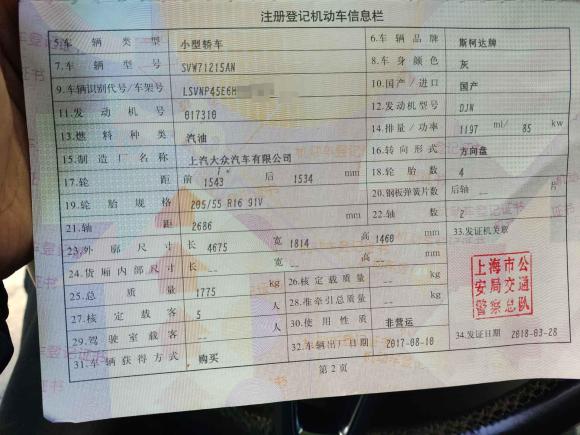 注册登记机动车信息栏
5.车辆类型 小型轿车 6.车辆品牌 斯柯达牌
7.车辆型号 SVW71215AN 8.车身颜色 灰
9.车辆识别代号/车架号 LSVNP45E6H 10.国产/进口 国产
11.发动机号 017310 12.发动机型号 DJN
13.燃料种类 汽油 14.排量/功率 1197 ml/ 85 kw
15.制造厂名称 上汽大众汽车有限公司 16.转向形式 方向盘
17.轮距 前 1543 后 1534 mm 18.轮胎数 4
19.轮胎规格 205/55 R16 91V 20.钢板弹簧片数 后轴 -- 片
21.轴距 2686 mm 22.轴数 2
23.外廓尺寸 长 4675 宽 1814 高 1460 mm 33.发证机关章
24.货厢内部尺寸 长 -- 宽 -- 高 -- mm
25.总质量 1775 kg 26.核定载质量 -- kg
27.核定载客 5 人 28.准牵引总质量 -- kg
29.驾驶室载客 -- 人 30.使用性质 非营运
31.车辆获得方式 购买 32.车辆出厂日期 2017-08-10 34.发证日期 2018-03-28
上海市公
安局交通
警察总队
第2页